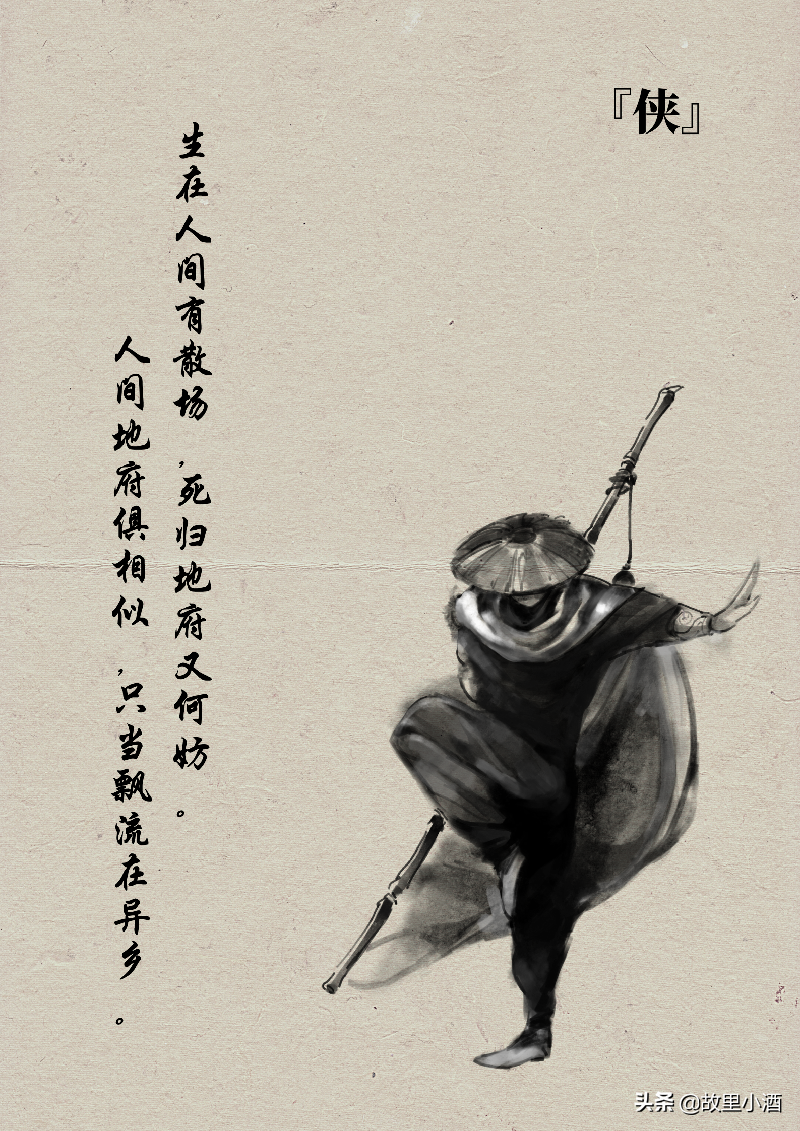 『侠』
生在人间有散场，死归地府又何妨。
人间地府俱相似，只当飘流在异乡。
头条 @故里小酒